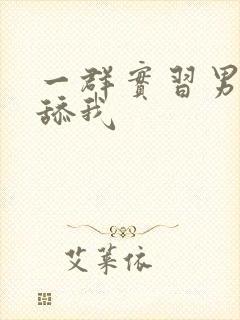 一群實習男
舔我
艾萊依